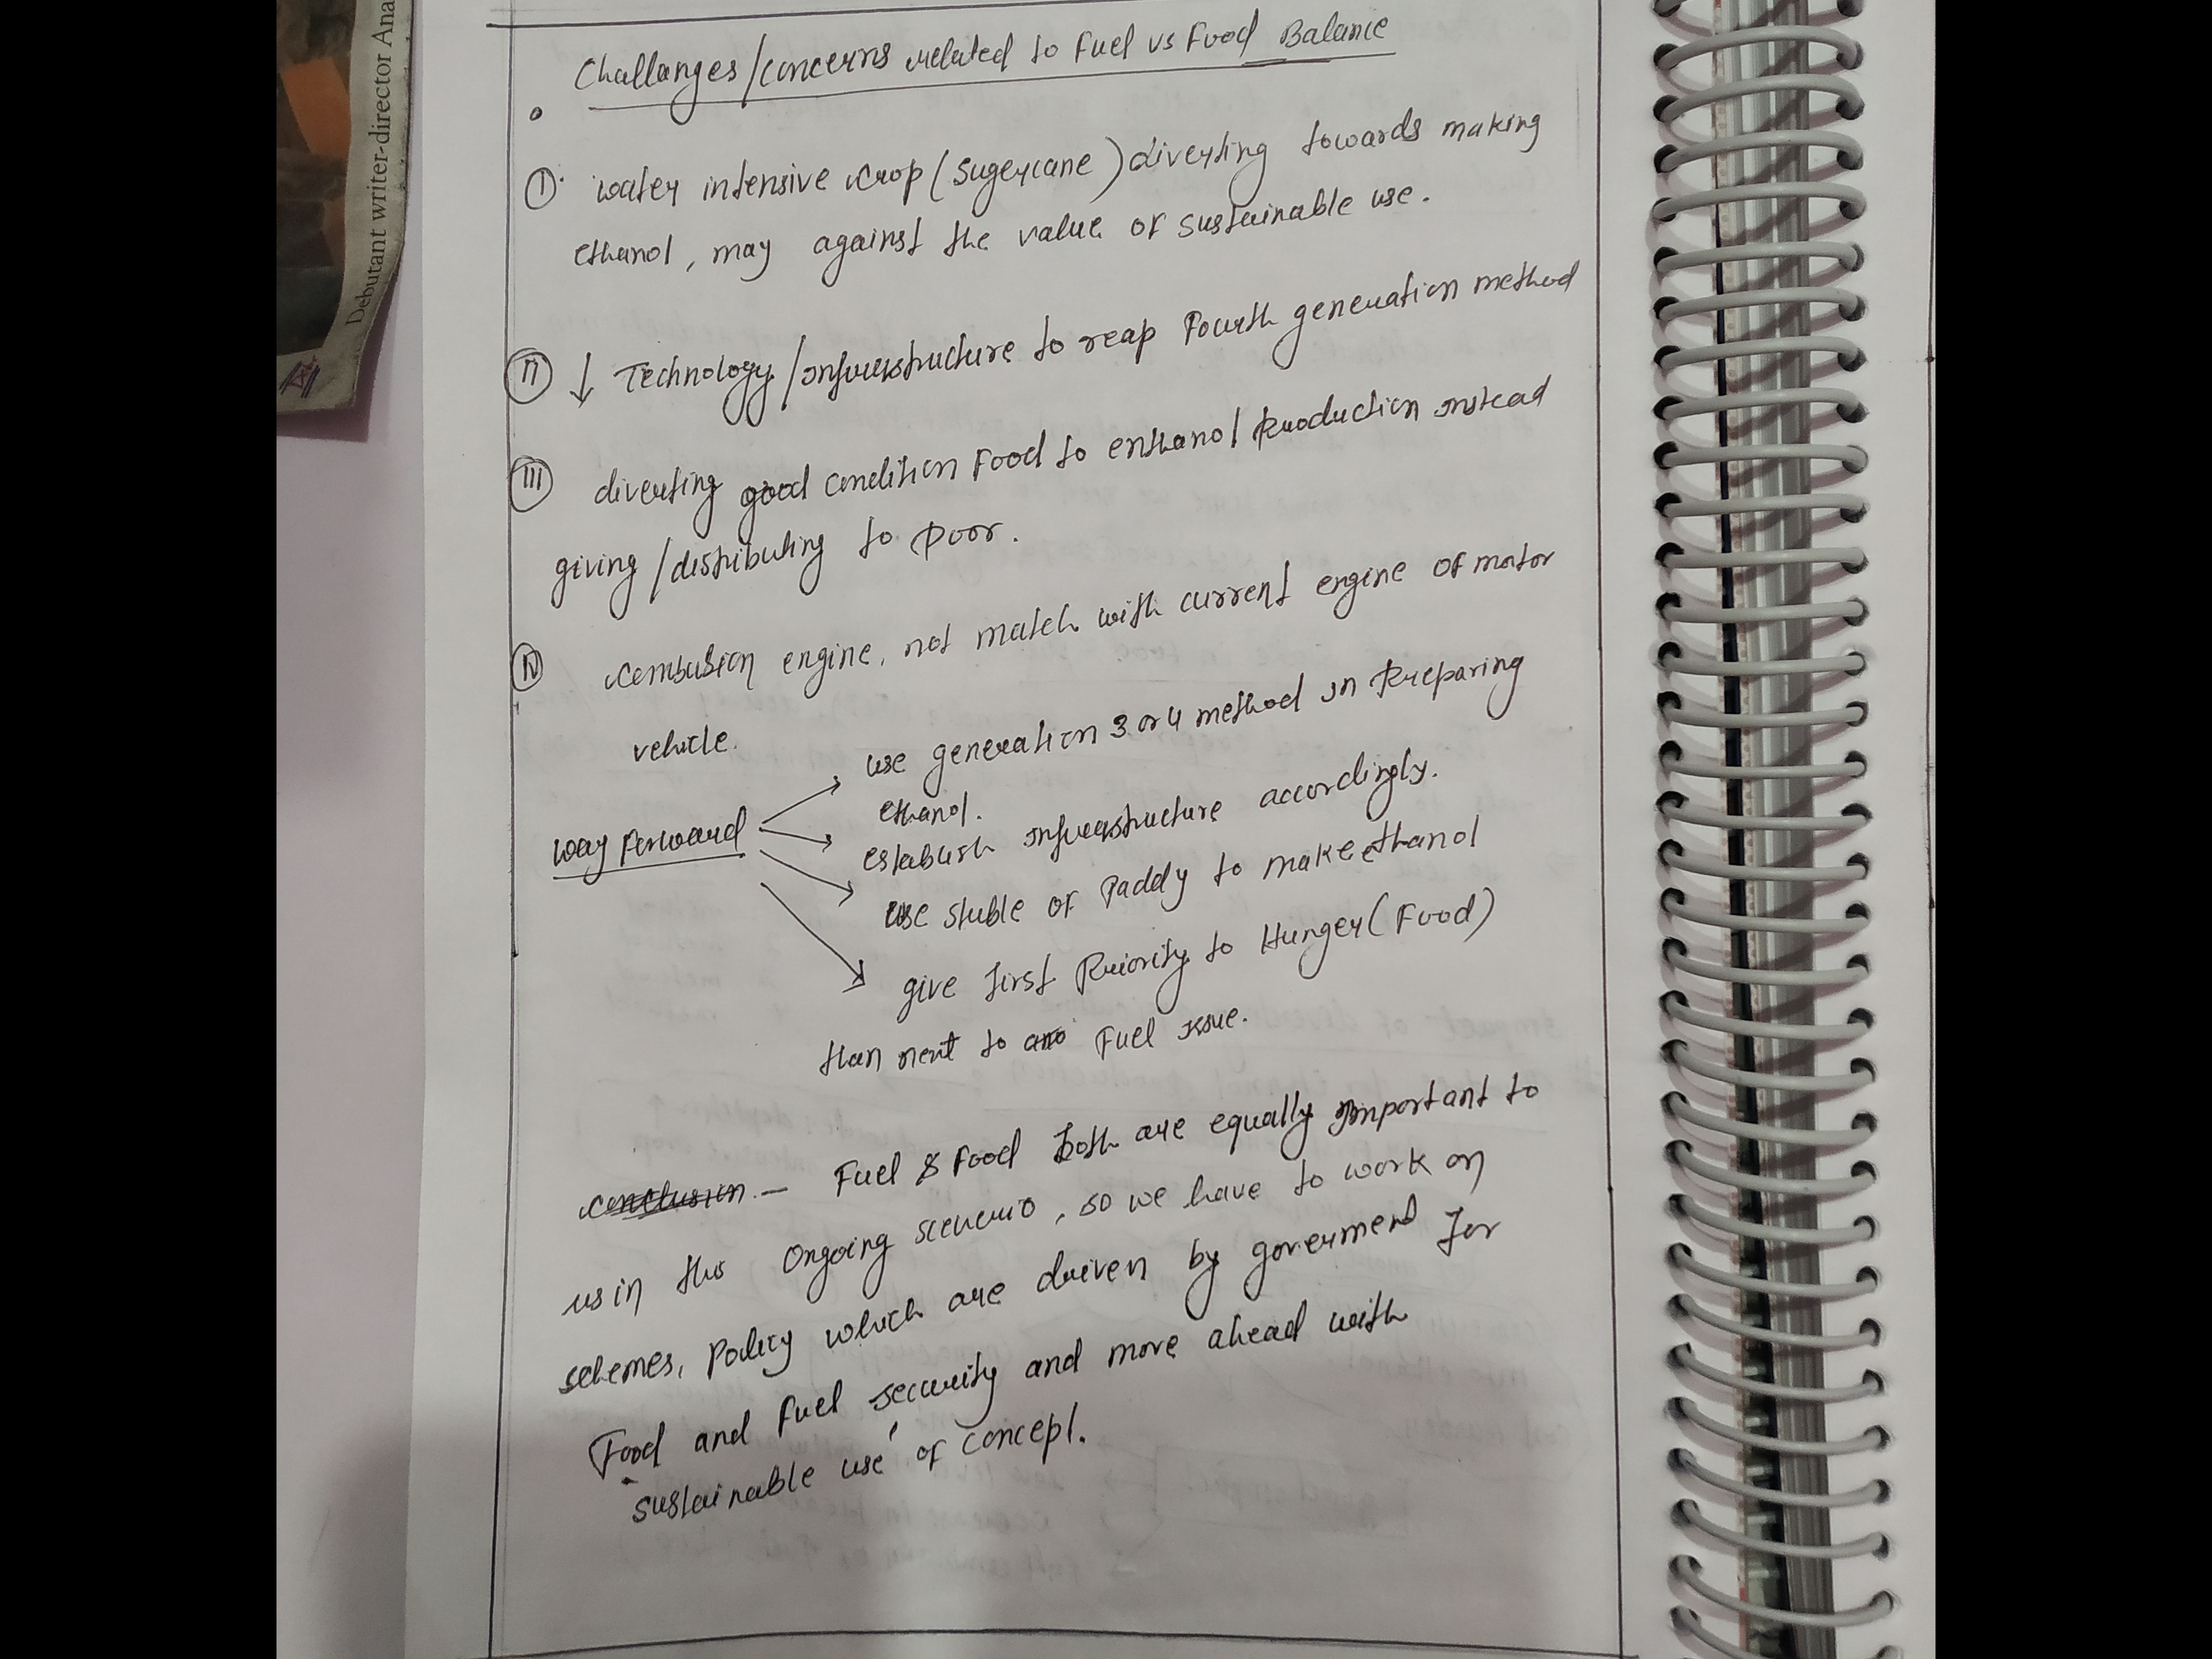 Debutant writer-director Ana
Challanges/concerns related to Fuel vs Food Balance
I. water intensive crop (sugercane) diverting towards making
ethanol, may against the value of sustainable use.
II ↓ Technology/infrastructure to reap Fourth generation method
III diverting good condition Food to enthanol production instead
giving/distributing to Poor.
IV combusion engine, not match with current engine of motor
vehicle.
use generation 3 or 4 method in Preparing
ethanol.
way forward
establish infrastructure accordingly.
use stuble of Paddy to make ethanol
give first Priority to Hunger (Food)
than next to Fuel issue.
conclusion - Fuel & Food both are equally important to
us in this Ongoing scenerio, so we have to work on
schemes, Policy which are driven by goverment for
Food and Fuel security and move ahead with
'sustainable use' of concept.